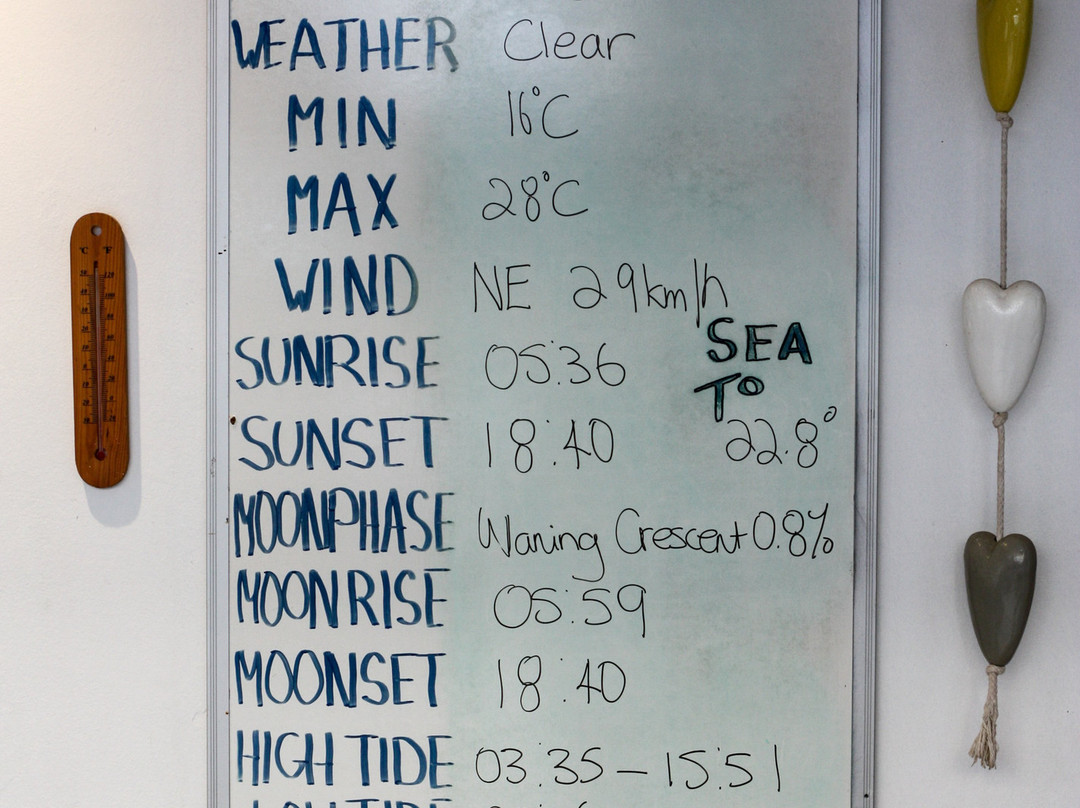 WEATHER Clear
MIN 16°C
MAX 28°C
WIND NE 29km/h
SEA
SUNRISE 05:36
T°
SUNSET 18:40 22.8°
MOONPHASE Waning Crescent 0.8%
MOONRISE 05:59
MOONSET 18:40
HIGH TIDE 03:35 - 15:51
°C °F